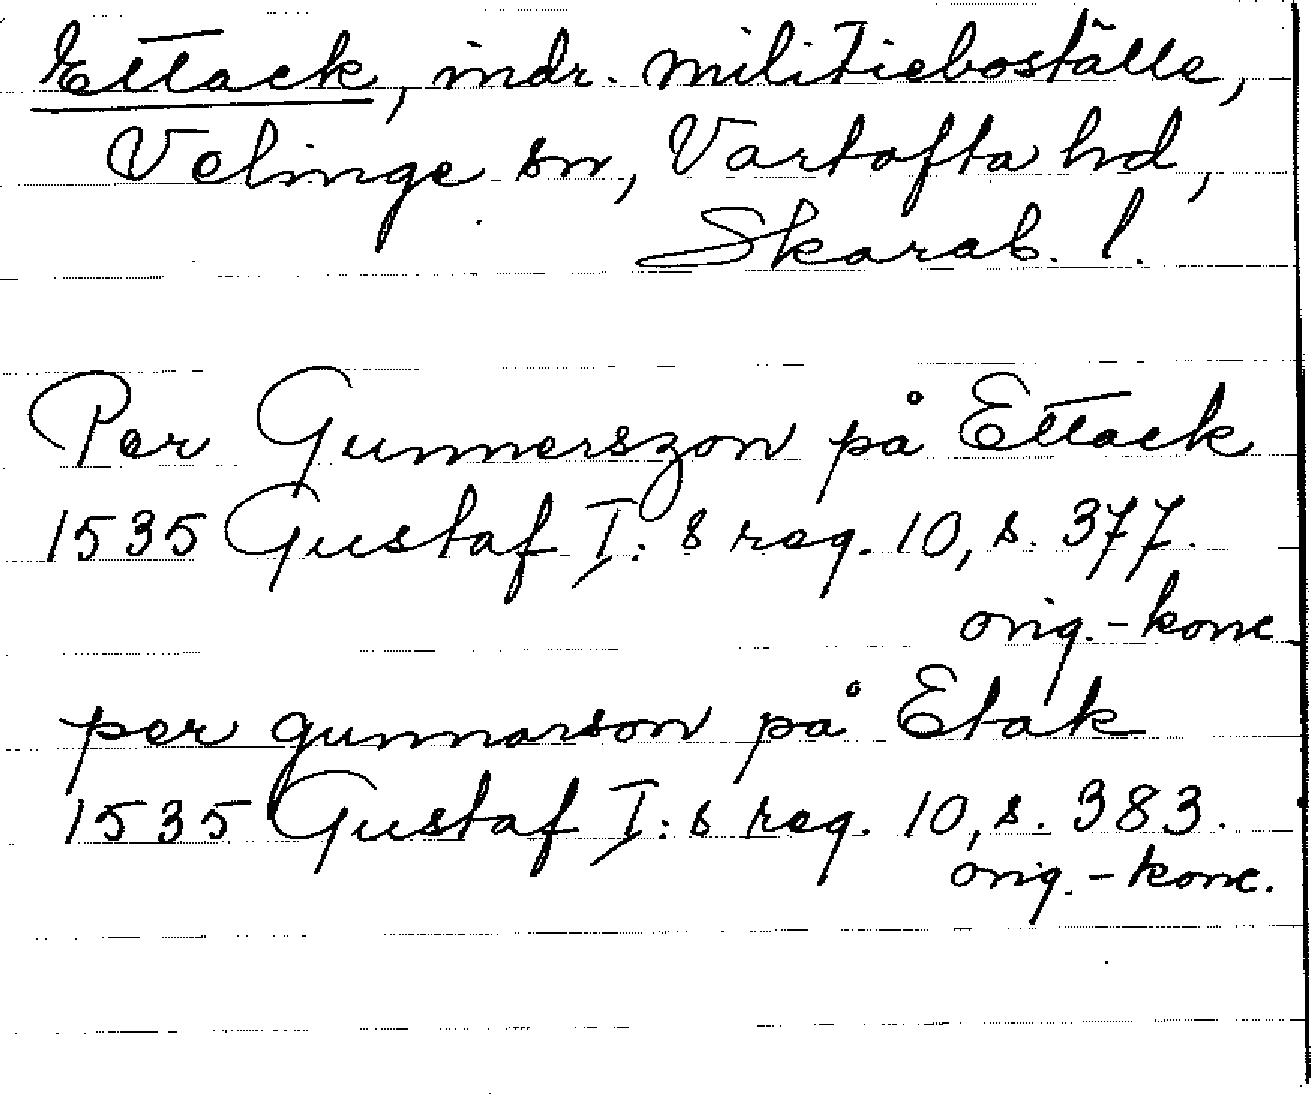 Ettack, indr. militieboställe,
Velinge sn, Vartofta hd,
Skarab. l.
Per Gunnerszon på Ettack
1535 Gustaf I: s reg. 10, s. 377.
orig.-konc
per gunnarson på Etak
1535 Gustaf I: s reg. 10, s. 383.
orig.-konc.